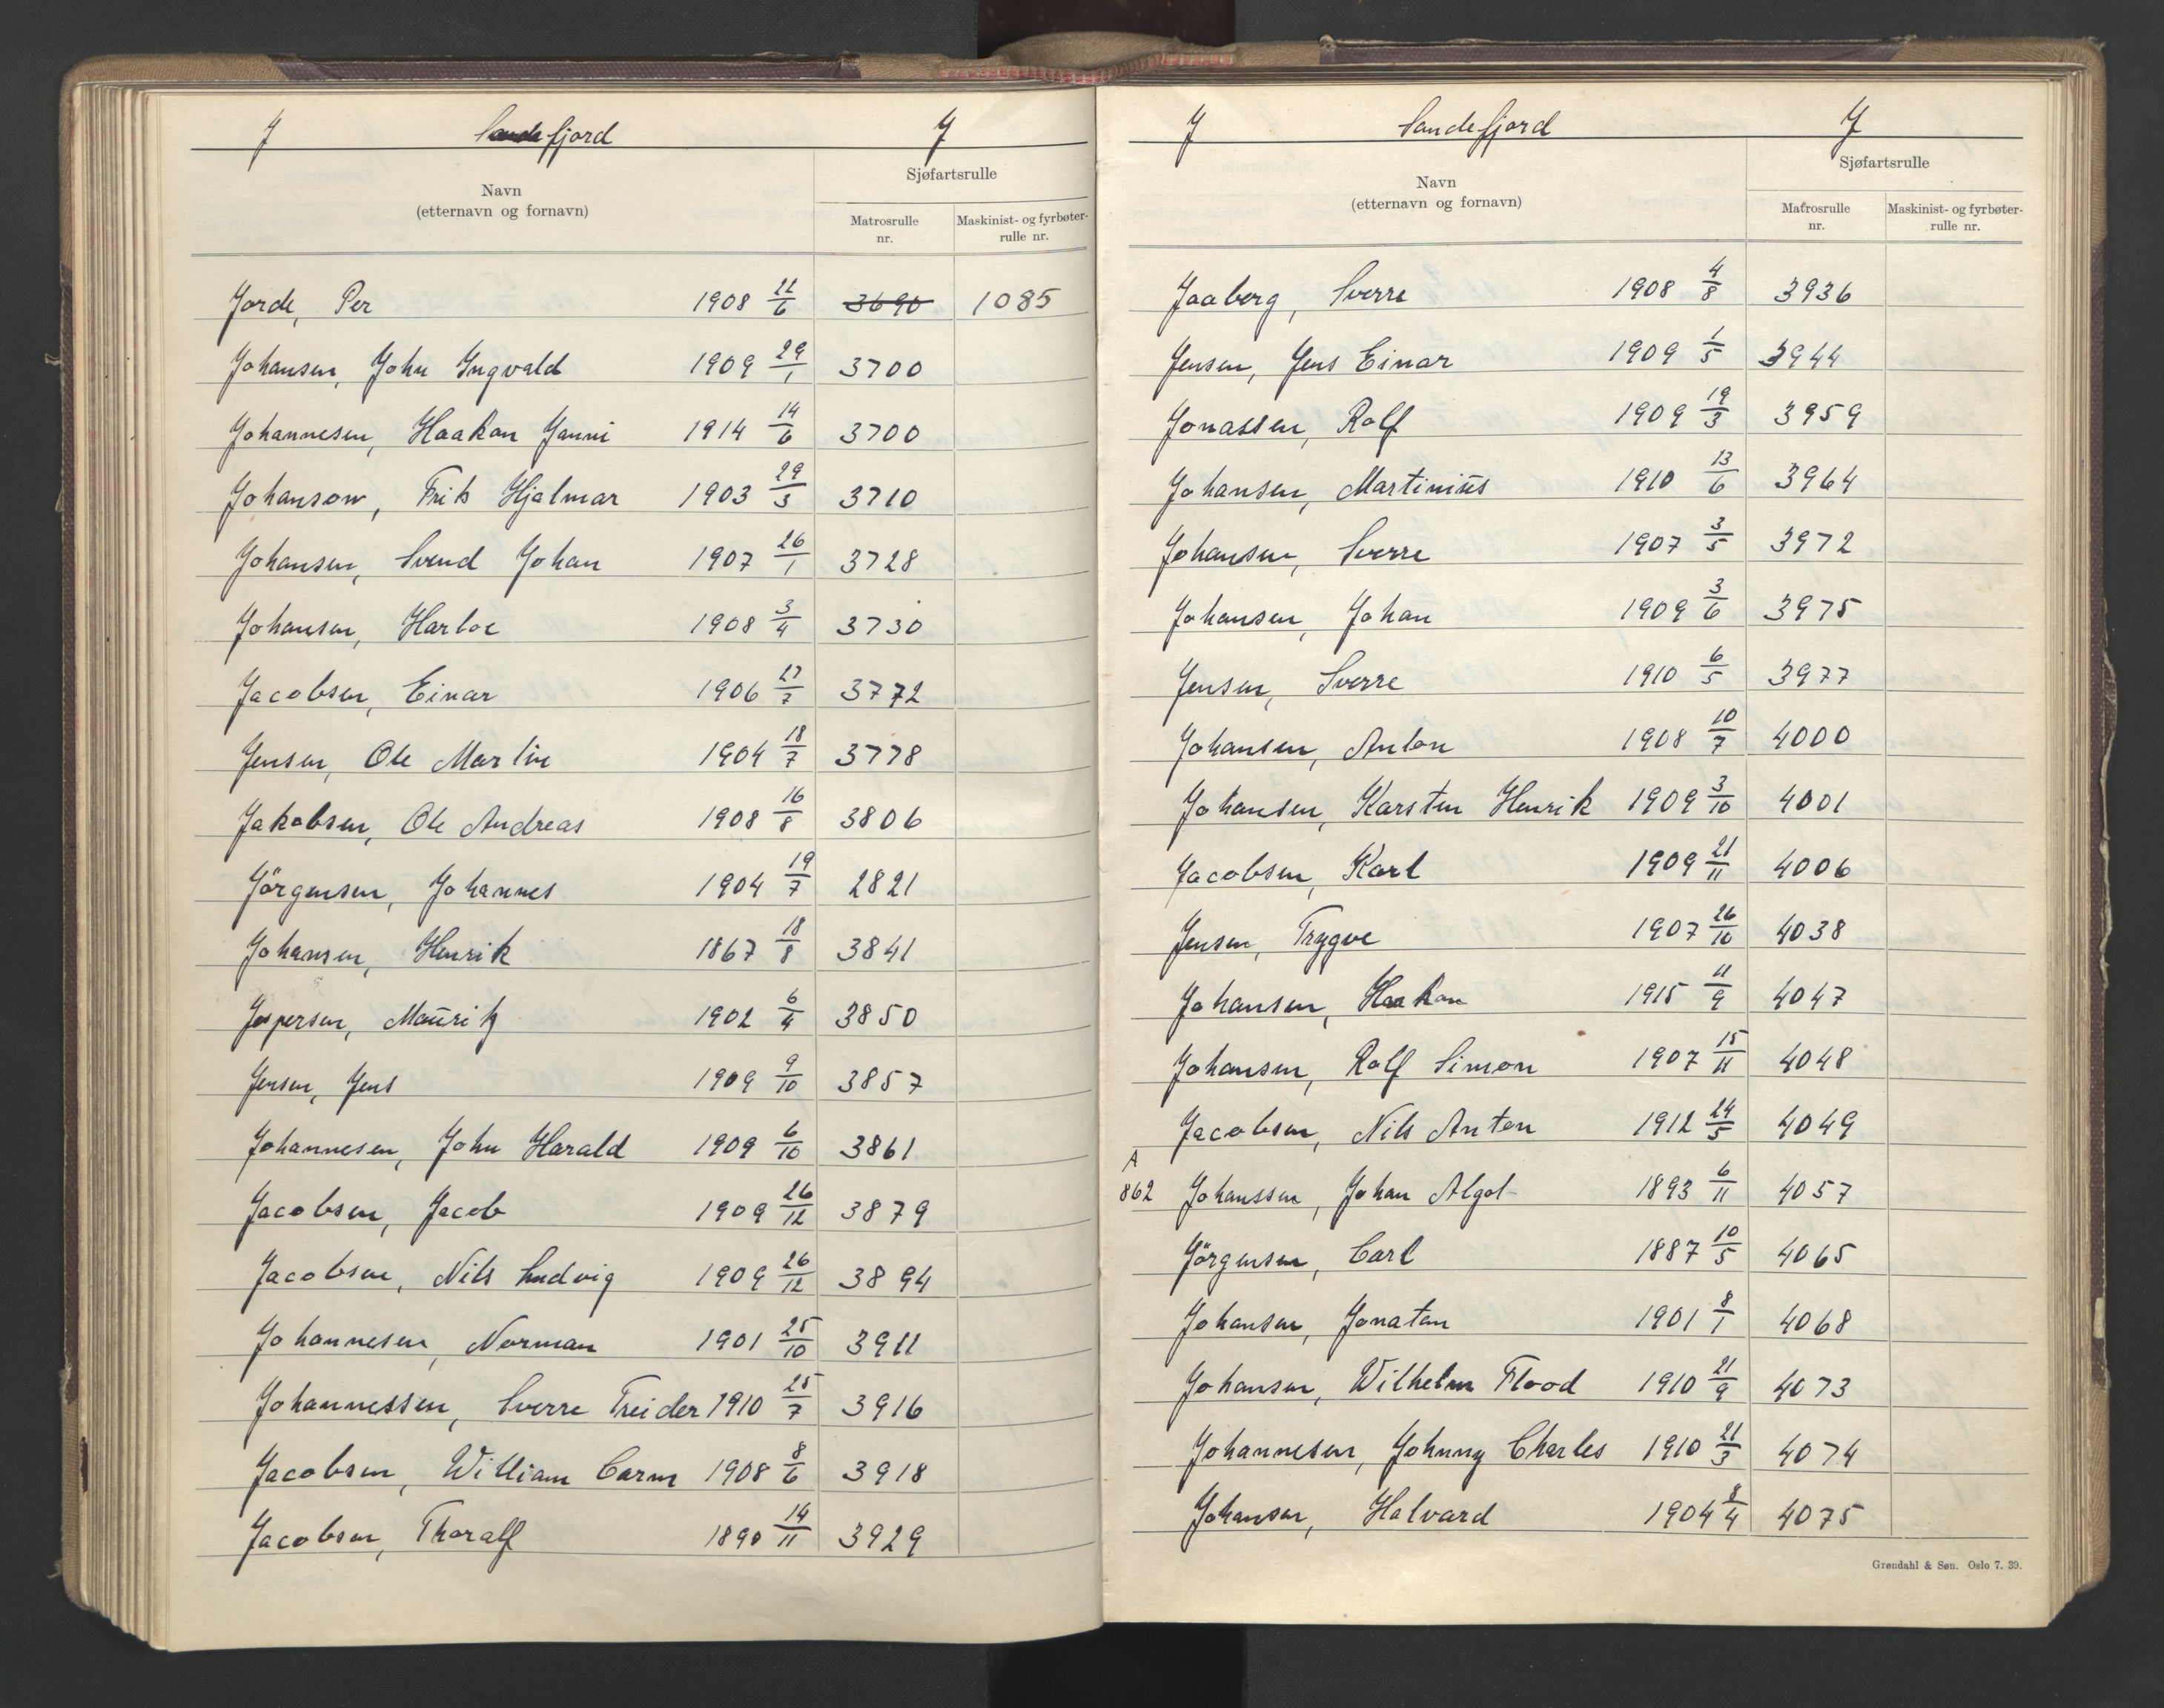 J Sandefjord J
Navn
(etternavn og fornavn)
Sjøfartsrulle
Matrosrulle
nr.
Maskinist- og fyrbøter-
rulle nr.
Jorde, Per 1908 22/6 3690 1085
Johansen, John Ingvald 1909 29/1 3700
Johannesen, Haakon Janni 1914 14/6 3700
Johanson, Frits Hjalmar 1903 29/3 3710
Johansen, Svend Johan 1907 26/1 3728
Johansen, Harloe 1908 3/4 3730
Jacobsen, Einar 1906 27/7 3772
Jensen, Ole Martin 1904 18/7 3778
Jakobsen, Ole Andreas 1908 16/8 3806
Jörgensen, Johannes 1904 19/7 2821
Johansen, Henrik 1867 18/8 3841
Jespersen, Mauritz 1902 6/4 3850
Jensen, Jens 1909 9/10 3857
Johannesen, John Harald 1909 6/10 3861
Jacobsen, Jacob 1909 26/12 3879
Jacobsen, Nils Ludvig 1909 26/12 3894
Johannesen, Norman 1901 25/10 3911
Johannessen, Sverre Treider 1910 25/7 3916
Jacobsen, William Carm 1908 8/6 3918
Jacobsen, Thoralf 1890 14/11 3929
J Sandefjord J
Navn
(etternavn og fornavn)
Sjøfartsrulle
Matrosrulle
nr.
Maskinist- og fyrbøter-
rulle nr.
Jaaberg, Sverre 1908 4/8 3936
Jensen, Jens Einar 1909 1/5 3944
Jonassen, Rolf 1909 19/3 3959
Johansen, Martinius 1910 13/6 3964
Johansen, Sverre 1907 3/5 3972
Johansen, Johan 1909 3/6 3975
Jensen, Sverre 1910 6/5 3977
Johansen, Anton 1908 10/7 4000
Johansen, Karsten Henrik 1909 3/10 4001
Jacobsen, Karl 1909 21/11 4006
Jensen, Trygve 1907 26/10 4038
Johansen, Haakon 1915 11/9 4047
Johansen, Rolf Simon 1907 15/11 4048
Jacobsen, Nils Anton 1912 24/5 4049
A
862 Johanssen, Johan Algot 1893 6/11 4057
Jörgensen, Carl 1887 10/5 4065
Johansen, Jonatan 1901 8/1 4068
Johansen, Wilhelm Flood 1910 21/9 4073
Johannesen, Johnny Charles 1910 21/3 4074
Johansen, Halvard 1904 8/4 4075
Grøndahl & Søn. Oslo 7. 39.